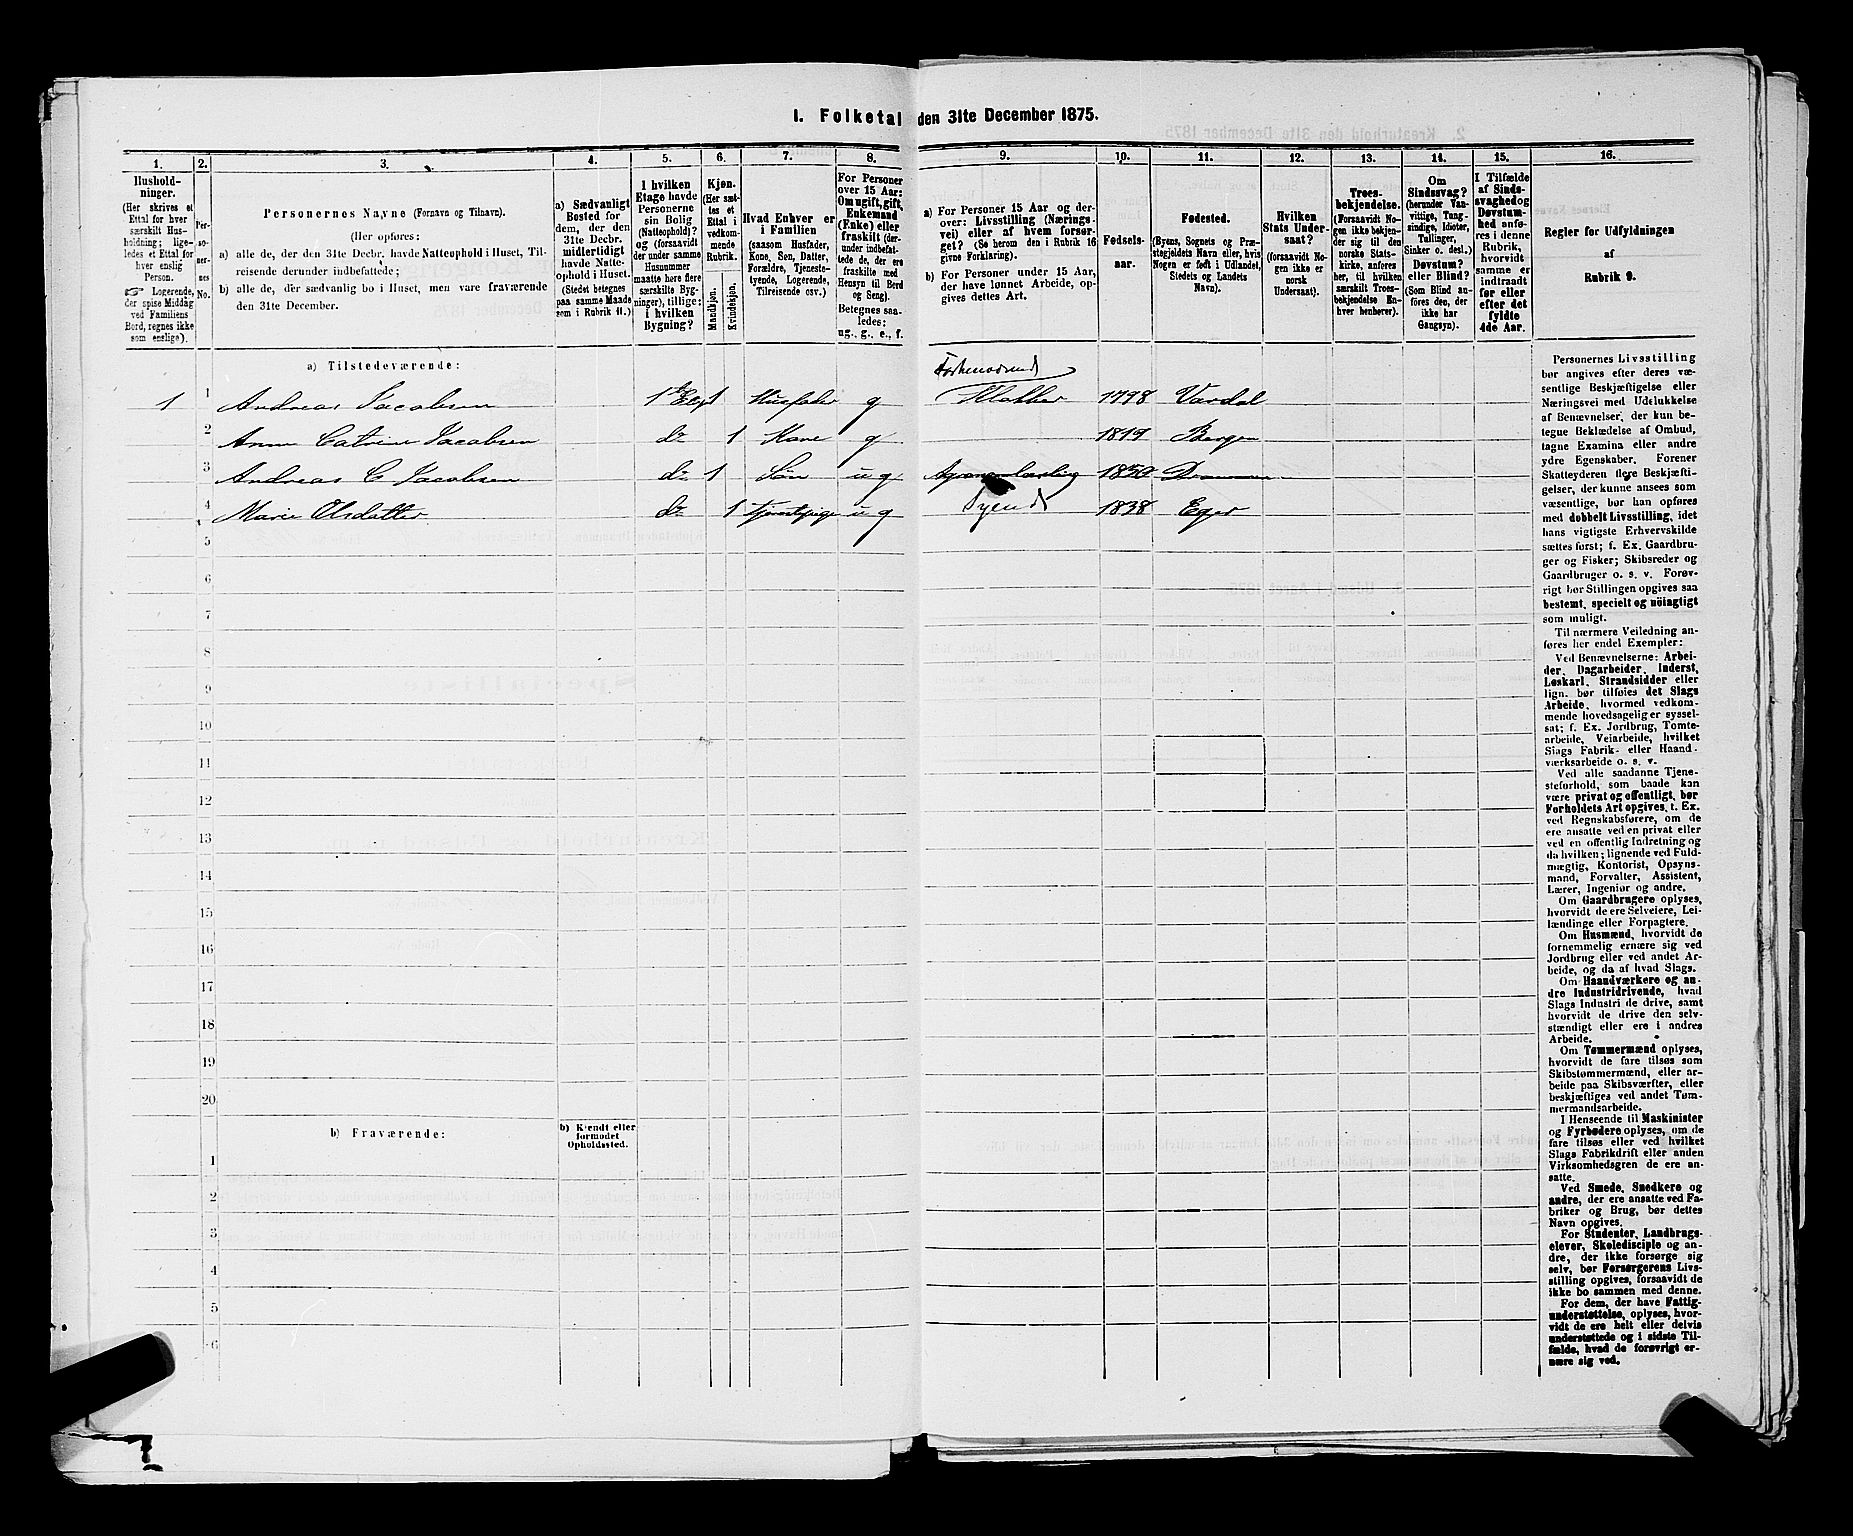 1. Folketal den 31te December 1875.
1. 2. 3. 4. 5. 6. 7. 8. 9. 10. 11. 12. 13. 14. 15. 16.
Husholdninger.
(Her skrives et
Ettal for hver
særskilt Husholdning;
ligeledes et Ettal for
hver enslig
Person.
☞ Logerende,
der spise Middag
ved Familiens
Bord, regnes ikke
som enslige).
Personernes No.
Personernes Navne (Fornavn og Tilnavn).
(Her opføres:
a) alle de, der den 31te Decbr. havde Natteophold i Huset, Tilreisende derunder indbefattede;
b) alle de, der sædvanlig bo i Huset, men vare fraværende
den 31te December.
a) Sædvanligt
Bosted for
dem, der den
31te Decbr.
midlertidigt
havde Natteophold i Huset.
(Stedet betegnes
paa samme Maade
som i Rubrik 11.)
I hvilken
Etage havde
Personerne
sin Bolig
(Natteophold)?
og (forsaavidt
der under samme
Husnummer
maatte høre flere
særskilte Bygninger), tillige:
i hvilken
Bygning?
Kjøn.
(Her sættes et
Ettal i
vedkommende
Rubrik.
Mandkjøn.
Kvindekjøn.
Hvad Enhver er
i Familien
(saasom Husfader,
Kone, Søn, Datter,
Forældre, Tjenestetyende, Logerende,
Tilreisende osv.)
For Personer
over 15 Aar:
Om ugift, gift,
Enkemand
(Enke) eller
fraskilt (derunder indbefattede de, der ere
fraskilte med
Hensyn til Bord
og Seng).
Betegnes saaledes:
ug., g., e., f.
a) For Personer 15 Aar og derover: Livsstilling (Næringsvei) eller af hvem forsørget? (Se herom den i Rubrik 16
givne Forklaring).
b) For Personer under 15 Aar,
der have lønnet Arbeide, opgives dettes Art.
Fødselsaar.
Fødested.
(Byens, Sognets og Præstegjeldets Navn eller, hvis
Nogen er født i Udlandet,
Stedets og Landets
Navn).
Hvilken
Stats Undersaat?
(forsaavidt Nogen ikke er
norsk
Undersaat).
Troesbekjendelse.
(Forsaavidt Nogen ikke bekjender sig til den
norske Statskirke, anføres
her, til hvilken
særskilt Troesbekjendelse Enhver henhører).
Om
Sindssvag?
(herunder Vanvittige, Tungsindige, Idioter,
Tullinger,
Sinker o. desl.)
Døvstum?
eller Blind?
(Som Blind anføres den, der
ikke har
Gangsyn).
I Tilfælde
af Sindssvaghed og
Døvstumhed anføres i denne
Rubrik,
hvorvidt
samme er
indtraadt
før eller
efter det
fyldte
4de Aar.
Regler for Udfyldningen
af
Rubrik 9.
a) Tilstedeværende:
1 1 Andreas Jacobsen 1 1 Husfader g Klokker 1798 Vardal
2 Anna Catrine Jacobsen do 1 Kone g 1819 Bergen
3 Andreas C Jacobsen do 1 Søn ug 1850 Drammen
4 Marie Olsdatter do 1 Tjenestepige ug Tyende 1838 Eger
5
6
7
8
9
10
11
12
13
14
15
16
17
18
19
20
b) Fraværende:
b) Kjendt eller
formodet
Opholdssted.
1
2
3
4
5
6
Personernes Livsstilling
bør angives efter deres væsentlige Beskjæftigelse eller
Næringsvei med Udelukkelse
af Benævnelser, der kun betegne Beklædelse af Ombud,
tagne Examina eller andre
ydre Egenskaber. Forener
Skatteyderen flere Beskjæftigelser, der kunne ansees som
væsentlige, bør han opføres
med dobbelt Livsstilling, idet
hans vigtigste Erhvervskilde
sættes først; f. Ex. Gaardbruger og Fisker; Skibsreder og
Gaardbruger o. s. v. Forøvrigt bør Stillingen opgives saa
bestemt, specielt og nöiagtigt
som muligt.
Til nærmere Veiledning anføres her endel Exempler:
Ved Benævnelserne: Arbeider, Dagarbeider, Inderst,
Løskarl, Strandsidder eller
lign. bør tilføies det Slags
Arbeide, hvormed vedkommende hovedsagelig er sysselsat; f. Ex. Jordbrug, Tomtearbeide, Veiarbeide, hvilket
Slags Fabrik- eller Haandværksarbeide o. s. v.
Ved alle saadanne Tjenesteforhold, som baade kan
være privat og offentligt, bør
Forholdets Art opgives, t. Ex.
ved Regnskabsførere, om de
ere ansatte ved en privat eller
ved en offentlig Indretning og
da hvilken; lignende ved Fuldmægtig, Kontorist, Opsynsmand, Forvalter, Assistent,
Lærer, Ingeniør og andre.
Om Gaardbrugere oplyses,
hvorvidt de ere Selveiere, Leilændinge eller Forpagtere.
Om Husmænd, hvorvidt de
fornemmelig ernære sig ved
Jordbrug eller ved andet Arbeide, og da af hvad Slags.
Om Haandværkere og andre Industridrivende, hvad
Slags Industri de drive, samt
hvorvidt de drive den selvstændigt eller ere i andres
Arbeide.
Om Tømmermænd oplyses,
hvorvidt de fare tilsøs som
Skibstømmermænd, eller arbeide paa Skibsværfter, eller
beskjæftiges ved andet Tømmermandsarbeide.
I Henseende til Maskinister
og Fyrbødere oplyses, om de
fare tilsøs eller ved hvilket
Slags Fabrikdrift eller anden
Virksomhedsgren de ere ansatte.
Ved Smede, Snedkere og
andre, der ere ansatte ved Fabriker og Brug, bør dettes
Navn opgives.
For Studenter, Landbrugselever, Skoledisciple og andre, der ikke forsørge sig
selv, bør Forsørgerens Livsstilling opgives, forsaavidt de
ikke bo sammen med denne.
For dem, der have Fattigunderstøttelse, oplyses, hvorvidt de ere helt eller delvis
understøttede og i sidste Tilfælde, hvad de forøvrigt ernære sig ved.